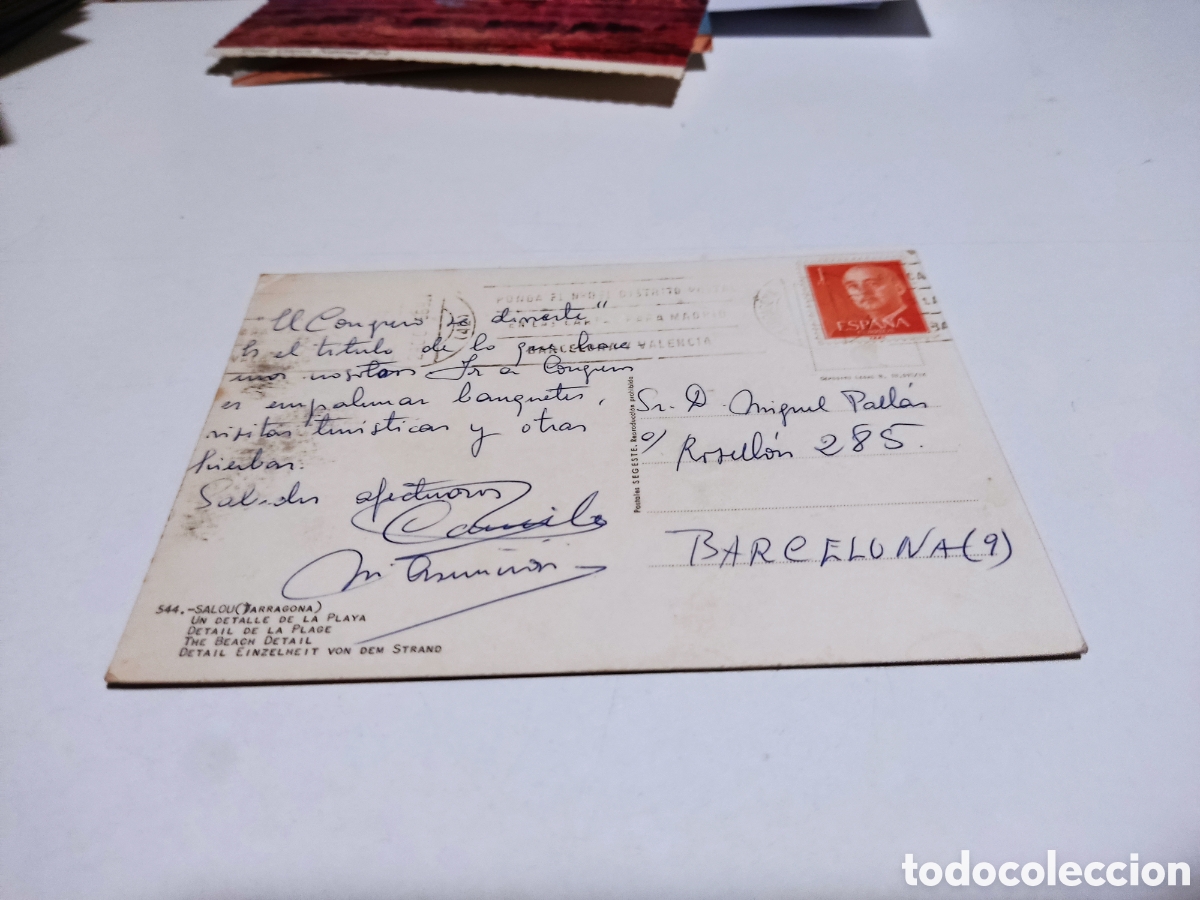 PONGA EL Nº DEL DISTRITO POSTAL
EN LAS CARTAS PARA MADRID
BARCELONA VALENCIA
ESPAÑA
"El Congreso se divierte"
Es el titulo de lo que hace
mos nosotros. Ir a Congresos
es empalmar banquetes,
visitas turísticas y otras
hierbas.
Saludos afectuosos
Camilo
Mª Asunción
544.-SALOU (TARRAGONA)
UN DETALLE DE LA PLAYA
DETAIL DE LA PLAGE
THE BEACH DETAIL
DETAIL EINZELHEIT VON DEM STRAND
Postales SEGESTE. Reproducción prohibida
Sr. D. Miguel Pallás
c/ Rosellón 285.
BARCELONA (9)
todocoleccion